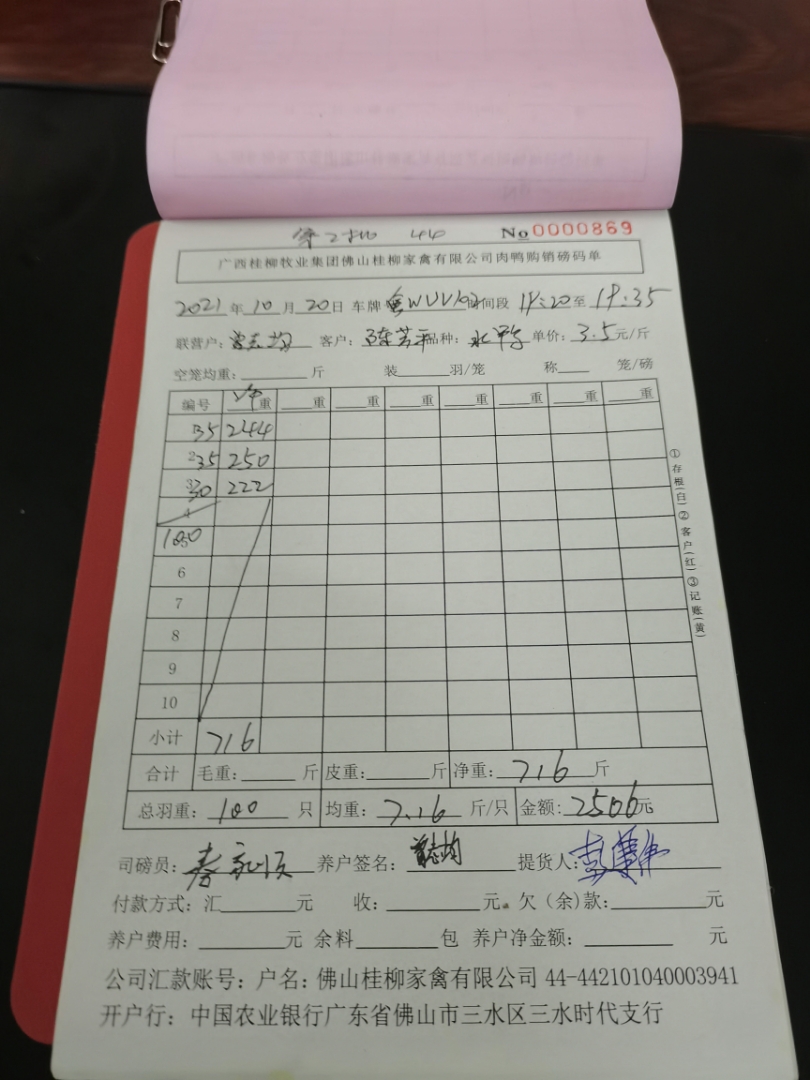 44 No 0000869
广西桂柳牧业集团佛山桂柳家禽有限公司肉鸭购销磅码单
2021 年 10 月 20 日 车牌 时间段 19:20 至 19:35
联营户: 客户: 陈芳 品种: 水鸭 单价: 3.5 元/斤
空笼均重: 斤 装 羽/笼 称 笼/磅
编号 重 重 重 重 重 重 重 重
1 35 244
2 35 250
3 30 222
4
5 100
6
7
8
9
10
小计 716
合计 毛重: 斤 皮重: 斤 净重: 716 斤
总羽重: 100 只 均重: 7.16 斤/只 金额: 2506 元
司磅员: 秦 养户签名: 提货人:
付款方式: 汇 元 收: 元。 欠(余)款: 元
养户费用: 元 余料 包 养户净金额: 元
公司汇款账号: 户名: 佛山桂柳家禽有限公司 44-442101040003941
开户行: 中国农业银行广东省佛山市三水区三水时代支行
①存根(白)②客户(红)③记账(黄)